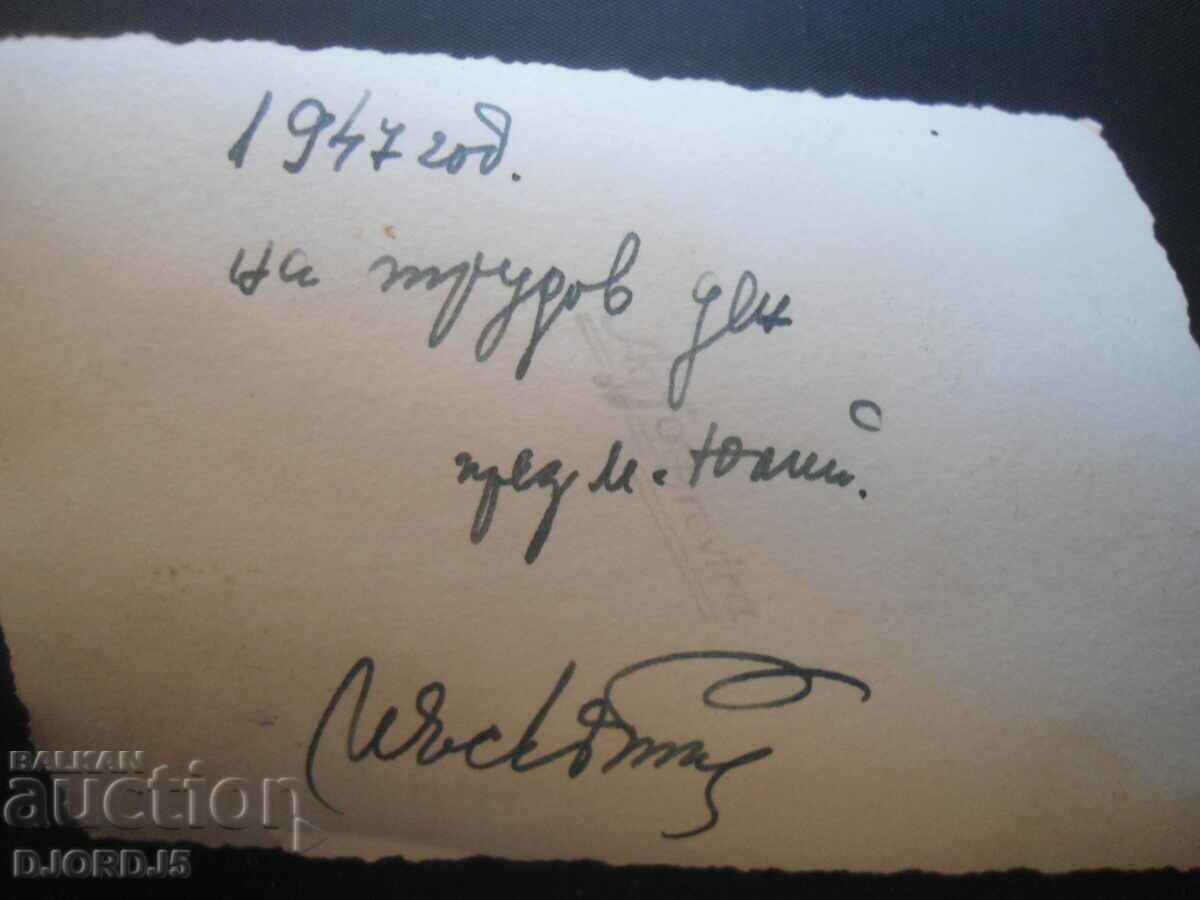 1947 год.
на трудов ден
пред м. Юлий.
BALKAN
auction
DJORDJ5